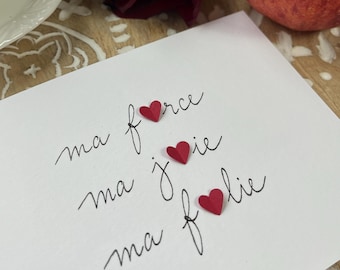 ma f❤rce
ma j❤ie
ma f❤lie